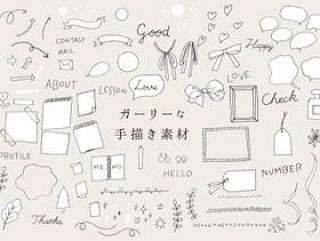 Good
CONTACT
MAIL
Happy
ABOUT
LESSON
Love
LOVE
Check
ガーリーな
手描き素材
PROFILE
MEMO
HELLO
NUMBER
Thanks